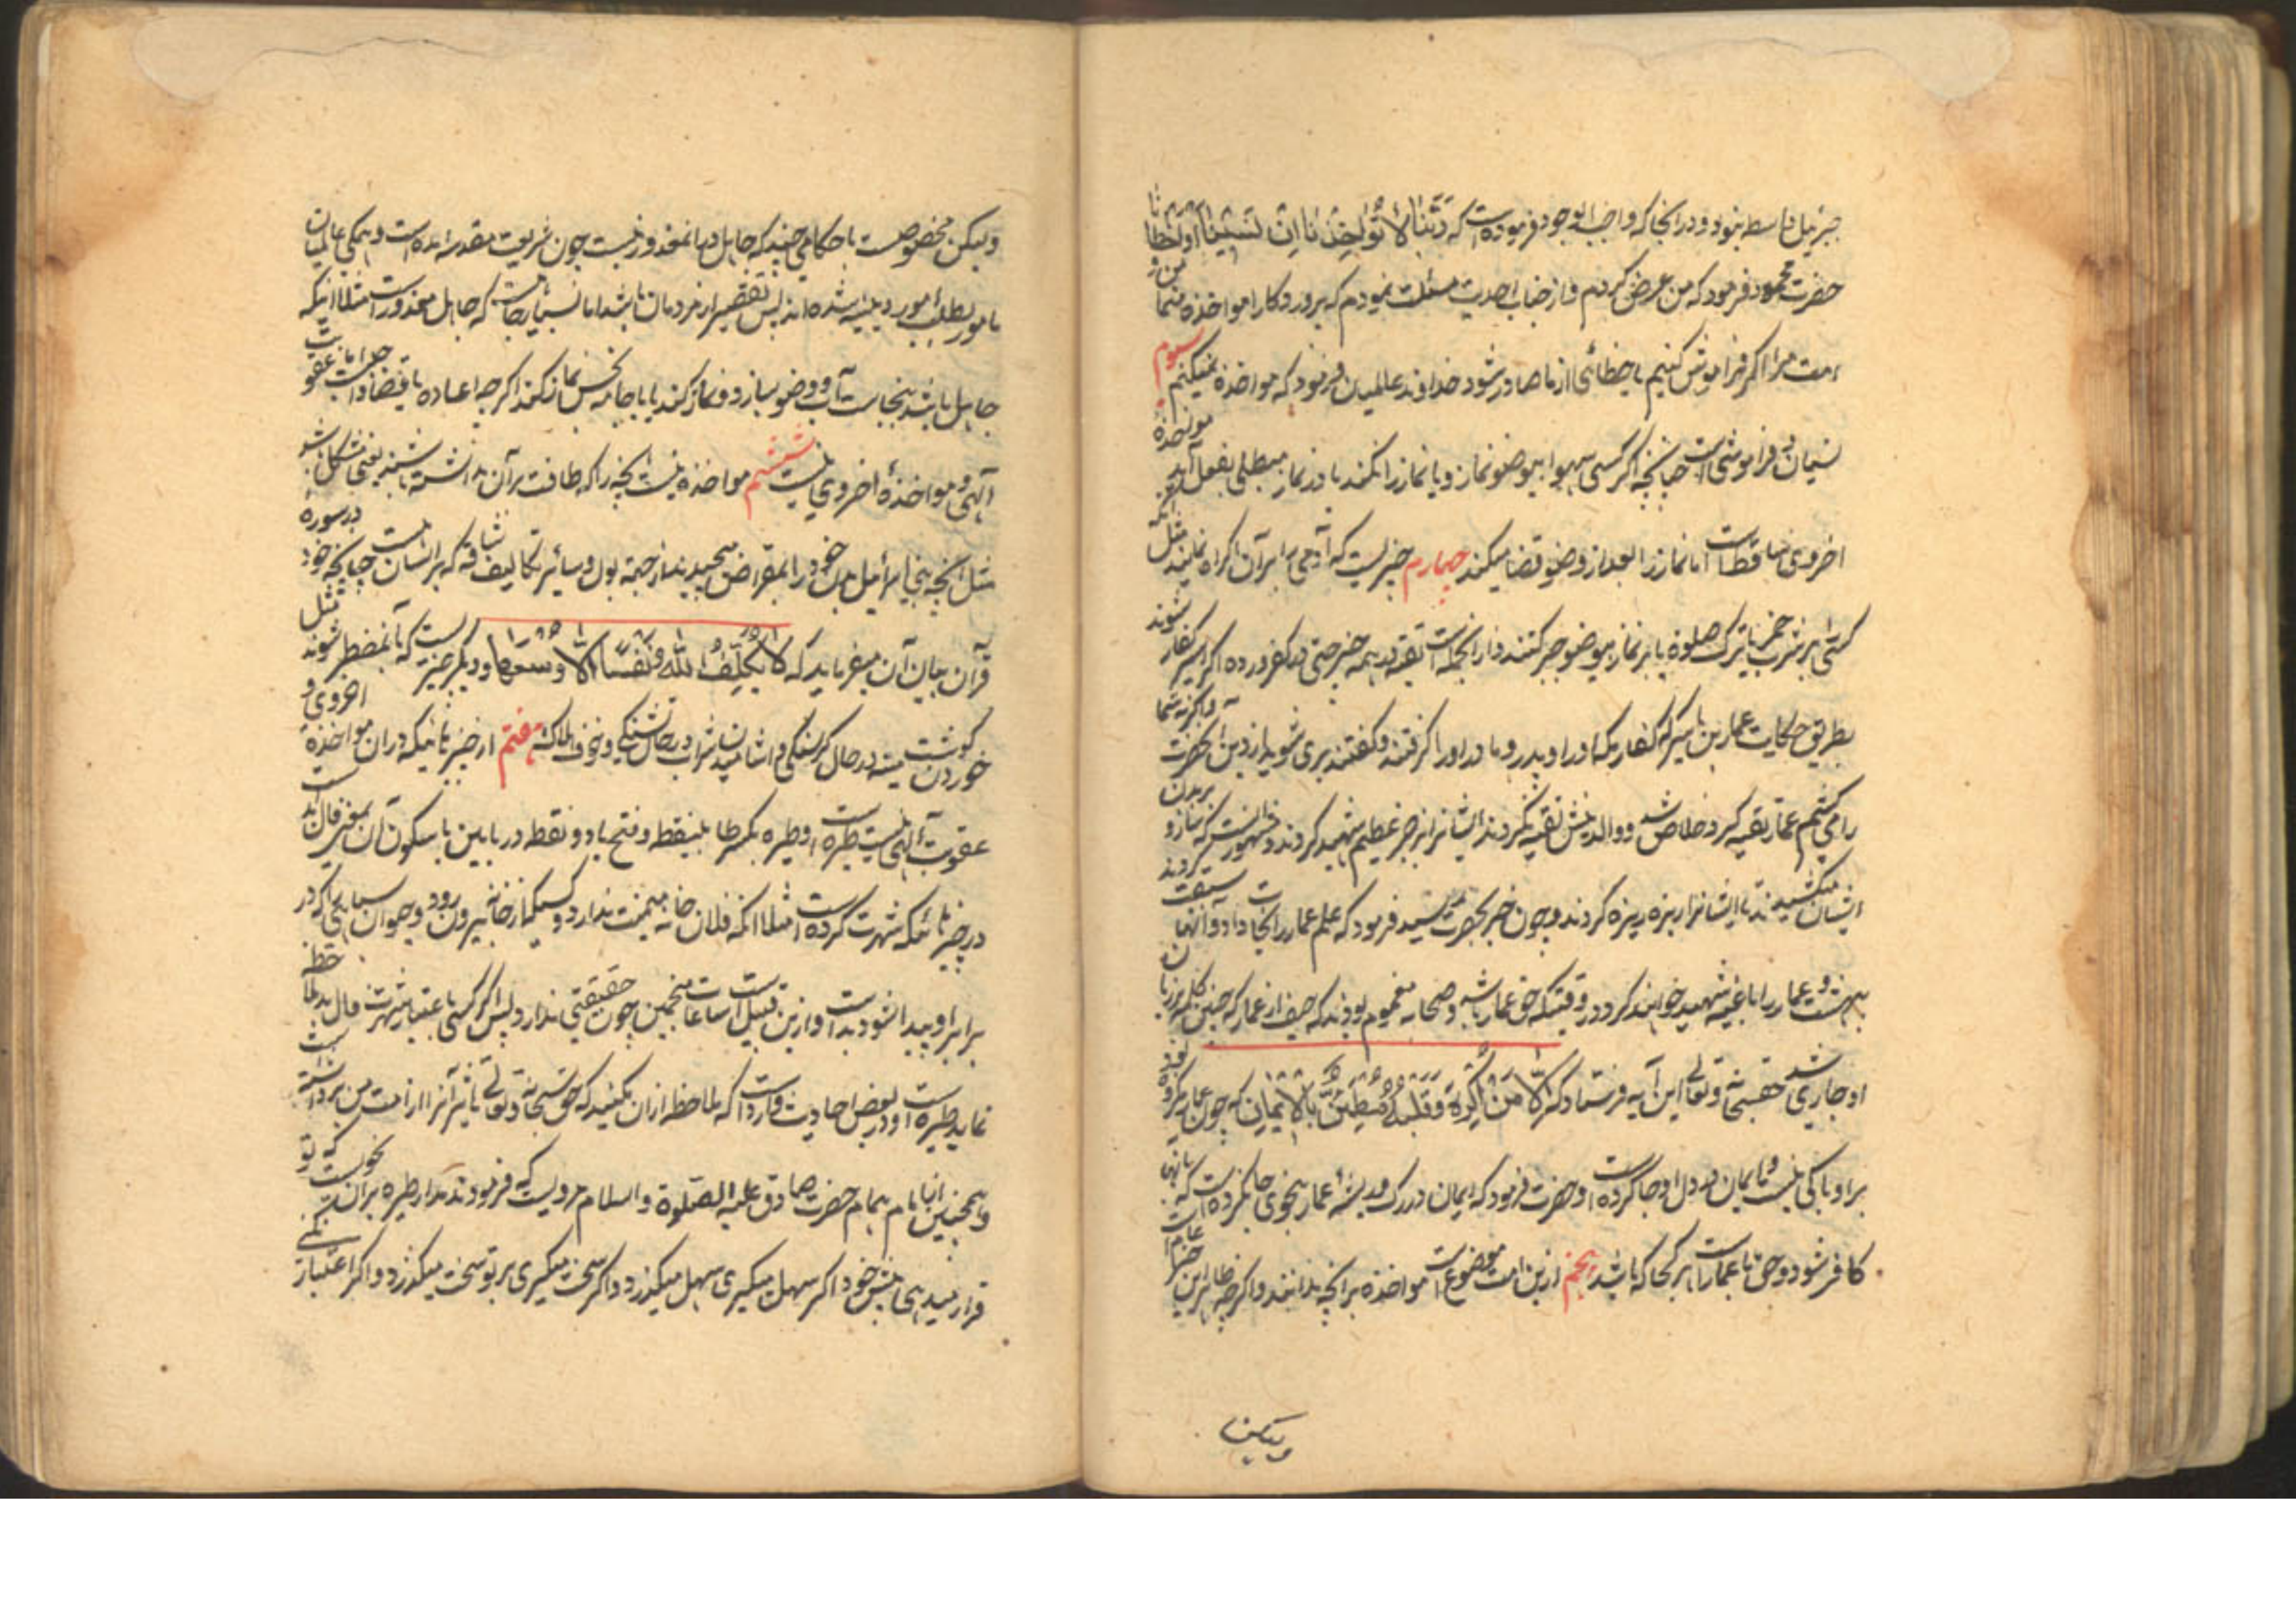 جبرئیل واسطه نبود و در انجا که واجب الوجود فرموده است که رَبَّنَا لَا تُؤَاخِذْنَا اِنْ نَسِینَا اَوْ اَخْطَانَا
حضرت محمود فرمود که من عرض کردم و از جناب احدیت مسئلت نمودم که پروردکارا مواخذه منما من و
امت مرا اکر فراموش کنیم یا خطائی از ماها صادر شود خداوند عالمیان فرمود که مواخذه نمیکنم سیوم
نسیان و فراموشی است چنانچه اکر کسی سهوا بیوضو نماز و یا نماز را نکند یا در نماز مبطلی بفعل آید مواخذهٔ
اخروی ساقط است اما نماز را بعد از وضو قضا میکند چهارم چیزیست که آدمی را بر آن اکراه نمایند مثل آنکه
کسی را بر شرب خمر یا ترک صلوة یا بر نماز بیوضو جبر کنند و از انجمله است تقیه در همه چیز حتی در کفر و رده اکر اسیر کفار شوند
بطریق حکایت عمار بن یاسر که کفار مکه او را و پدر و مادر او را کرفتند و کفتند بری شوید از دین انحضرت و اکر نه شما
را می کشیم عمار تقیه کرد و خلاص شد و والدینش تقیه نکردند ایشانرا بزجر عظیم شهید کردند و مشهور است که
ایشان میکشیدند تا ایشانرا ریزه ریزه کردند و چون خبر بحضرت رسید فرمود که علم عمار را نجات داد و آنها سبقت کردند
بهشت و عمار را باغیه شهید خواهند کرد در وقتیکه حق با عمار باشد و صحابه مغموم بودند که حیف از عمار که چنین کلمه بر زبان
او جاری شد حقسبحانه و تعالی این آیه فرستاد که اِلَّا مَنْ اُکْرِهَ وَ قَلْبُهُ مُطْمَئِنٌّ بِالْاِیمَانِ که چون عمار مکره بود
بر او باکی نیست و ایمان در دل او جا کرده است و حضرت فرمود که ایمان در رک و ریشهٔ عمار بنحوی جا نکرده است که بانها
کافر شود و حق با عمار است هر کجا که باشد پنجم ازین امت موضوع است مواخذه بر انچه ندانند و اکرچه ظاهر این خبر عام است
ولیکن
ولیکن مخصوص است باحکامی چند که جاهل درانها معذور نیست چون شریعت مقدسه آمده است و همکی عالمیان
مامور بطلب امور دینیه شده اند پس تقصیر از مردمان باشد اما بسیار جاست که جاهل معذور است مثلا اینکه
جاهل باشد بنجاست آب و وضو سازد و نماز کند یا با جامه نجس نماز کند اکرچه اعاده یا قضا واجبست اما عقوبت
آلهی و مواخذهٔ اخروی نیست ششم مواخذه نیست بانچه را که طاقت بر آن نداشته باشند یعنی مشکل باشد
مثل انچه بنی اسرائیل بدن خود را بمقراض میچیدند از جهة بول و سائر تکالیف شاقه که بر ایشان است چنانچه خود در سورهٔ
قرآن بیان آن میفرماید که لَا یُکَلِّفُ اللّٰهُ نَفْسًا اِلَّا وُسْعَهَا و دیکر چیزیست که بآن مضطر شوند مثل
خوردن کوشت میته در حال کرسنکی و اشامیدن شراب در حال تشنکی و خوف هلاکت هفتم از چیزهائیکه دران مواخذهٔ اخروی و
عقوبت آلهی نیست طیره است و طیره بکسر طا بینقطه و فتح یا دو نقطه در پایین یا سکون آن بمعنی فال بد است
در چیزهائیکه شهرت کرده است مثلا انکه فلان خانه میمنت ندارد و کسیکه از خانه بیرون رود و حیوان سیاهی را که در
برابر او پیدا شود بد است و ازین قبیل است ساعات منجمین چون حقیقتی ندارد پس اکر کسی باعتبار شهرت فال بد ملاحظه
نماید طیره است و در بعض احادیث وارد است که ملاحظه ازان نکنید که حق سبحانه و تعالی تاثیر آنرا از امت من برداشته است
و همچنین از امام بهمام حضرت صادق علیه الصلوة و السلام مرویست که فرمودند مدار طیره بران نحویست که تو
قرار میدهی پیش خود اکر سهل میکیری سهل میکذرد و اکر سخت میکیری بر تو سخت میکذرد و اکر اعتبار نکنی